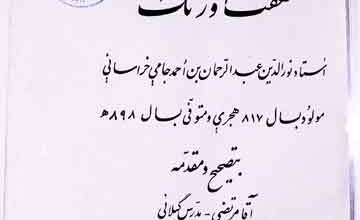 هفت اورنگ
استاد نورالدّین عبدالرّحمان بن احمد جامی خراسانی
مولود بسال ۸۱۷ هجری و متوفّی بسال ۸۹۸ ﻫ
بتصحیح و مقدّمه
آقا مرتضی - مدرّس گیلانی